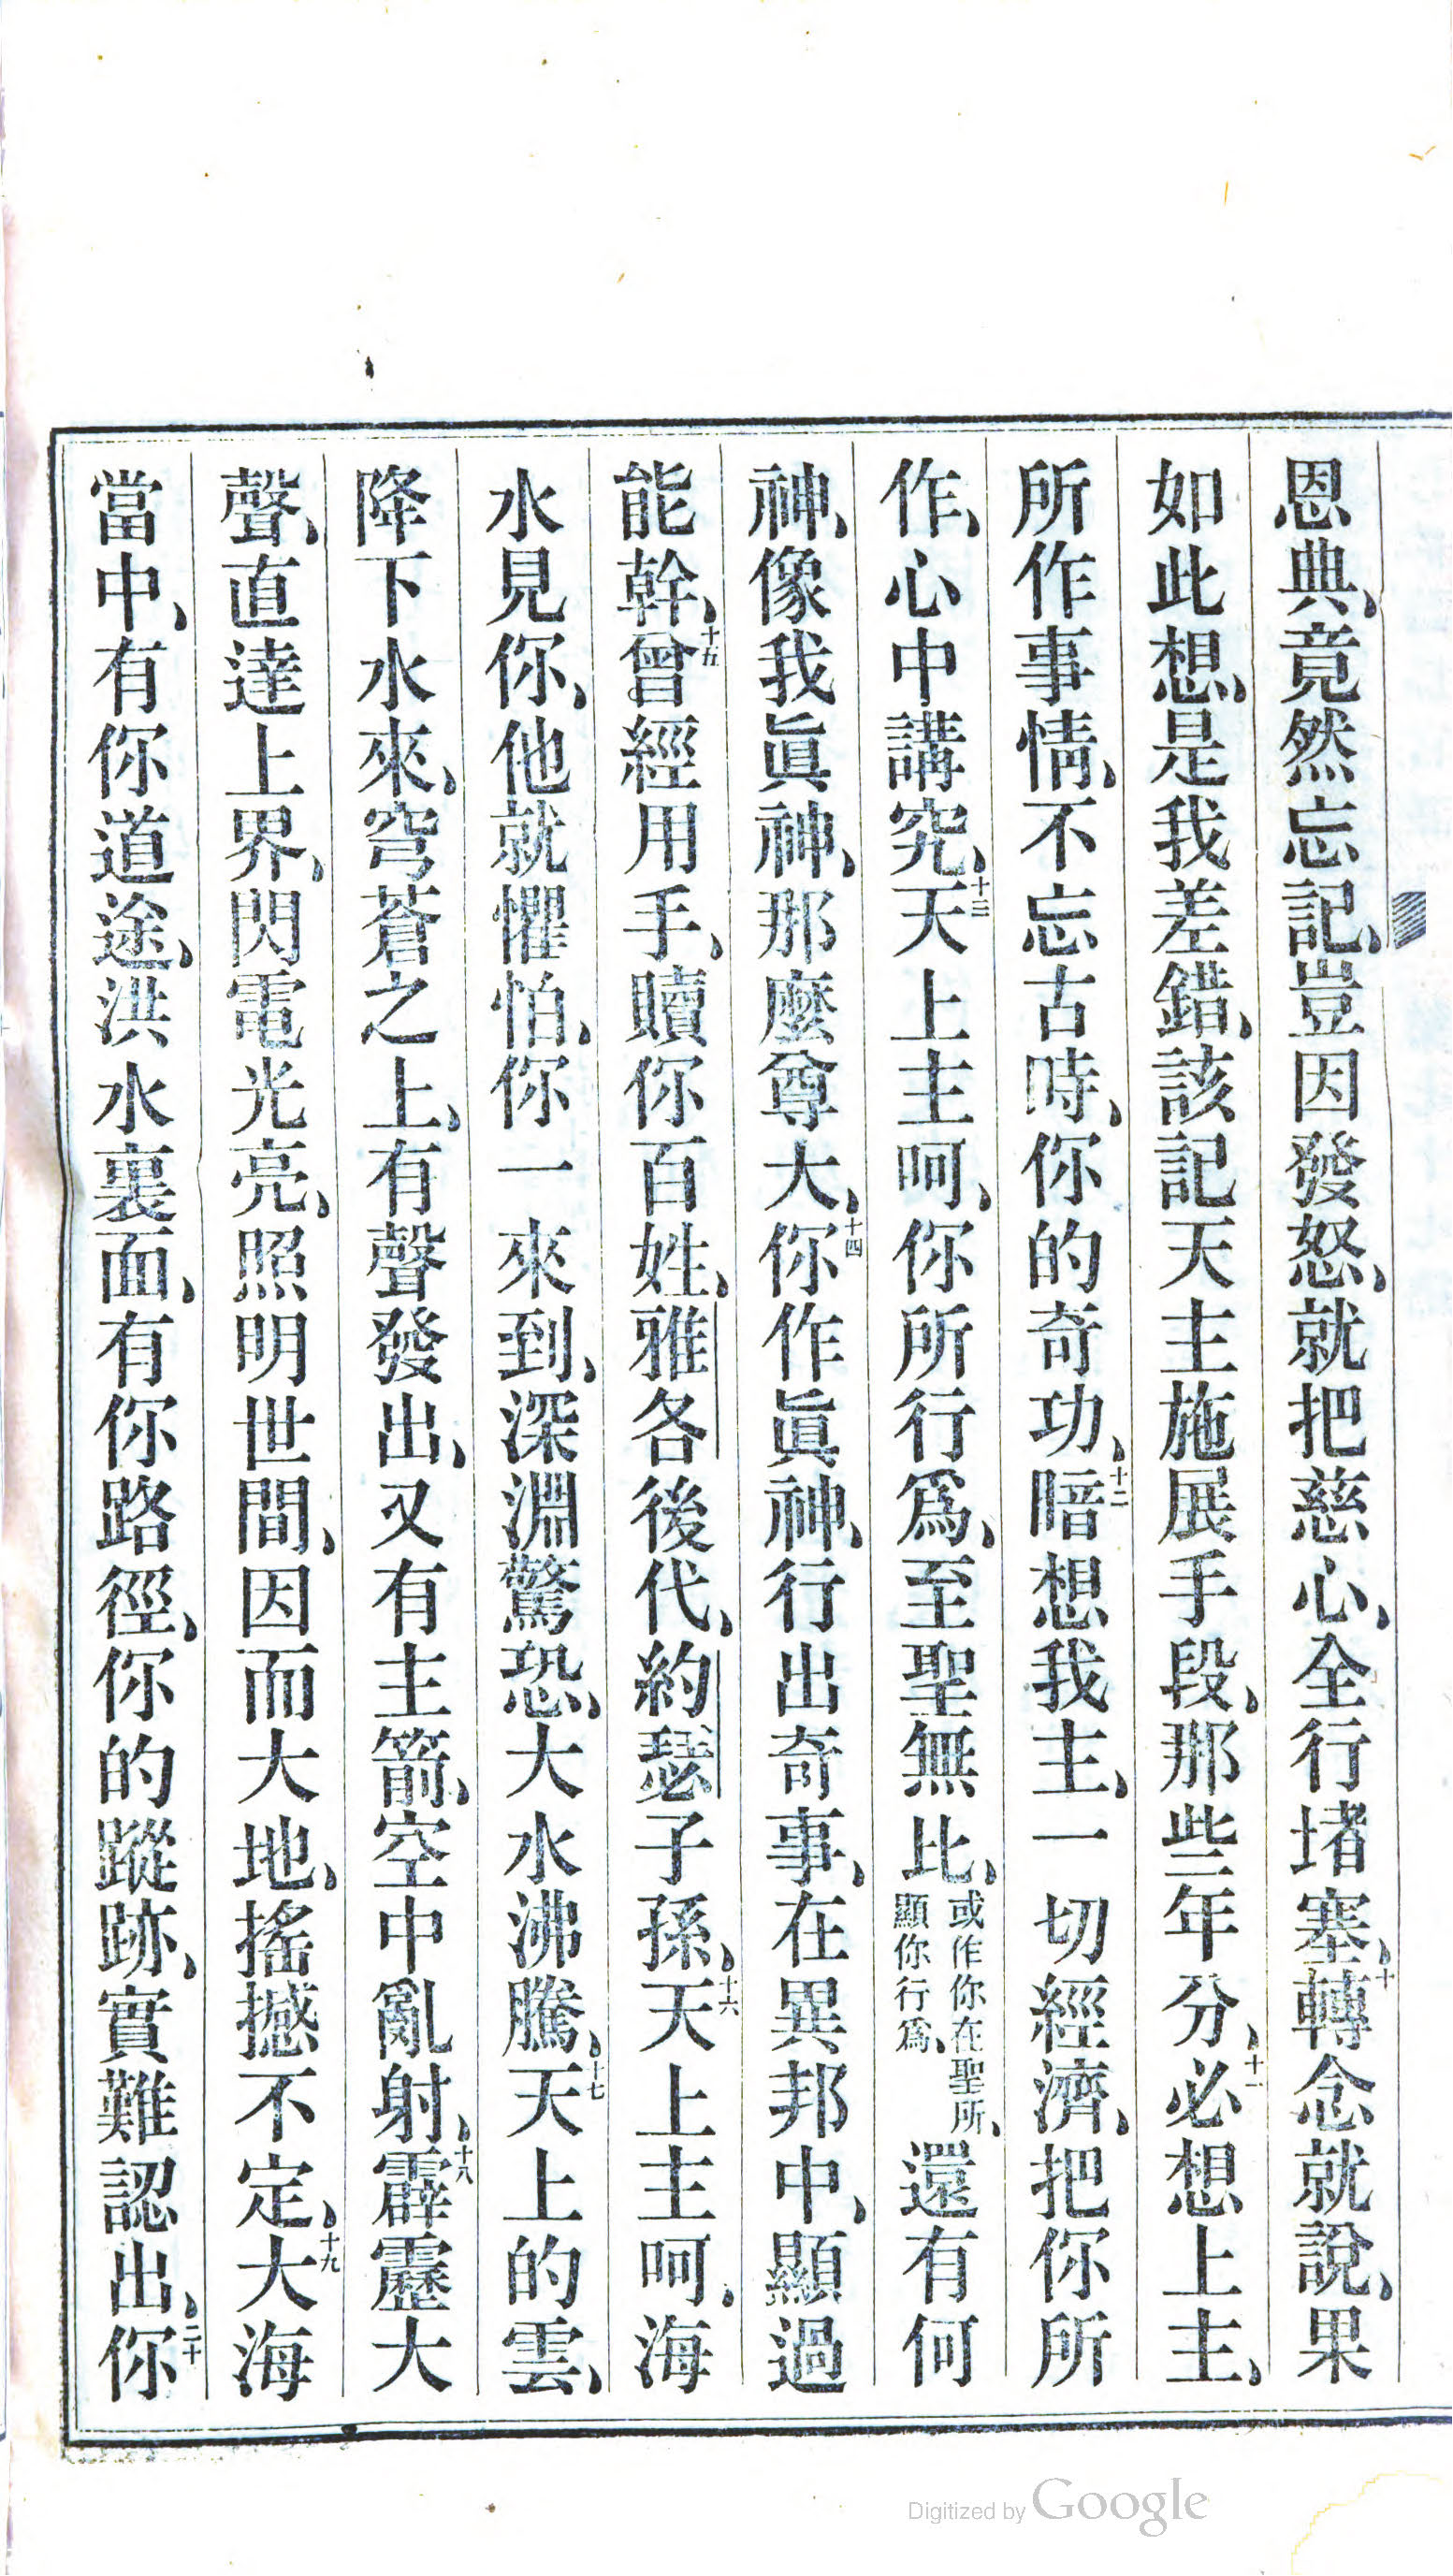 恩典、竟然忘記、豈因發怒、就把慈心、全行堵塞、十轉念就說、果
如此想、是我差錯、該記天主施展手段、那些年分、十一必想上主、
所作事情、不忘古時、你的奇功、十二暗想我主、一切經濟、把你所
作、心中講究、十三天上主呵、你所行爲、至聖無比、或作你在聖所、顯你行爲、還有何
神、像我眞神、那麼尊大、十四你作眞神、行出奇事、在異邦中、顯過
能幹、十五曾經用手、贖你百姓、雅各後代、約瑟子孫、十六天上主呵、海
水見你、他就懼怕、你一來到、深淵驚恐、大水沸騰、十七天上的雲、
降下水來、穹蒼之上、有聲發出、又有主箭、空中亂射、十八霹靂大
聲、直達上界、閃電光亮、照明世間、因而大地、搖撼不定、十九大海
當中、有你道途、洪水裏面、有你路徑、你的蹤跡、實難認出、二十你
Digitized by Google